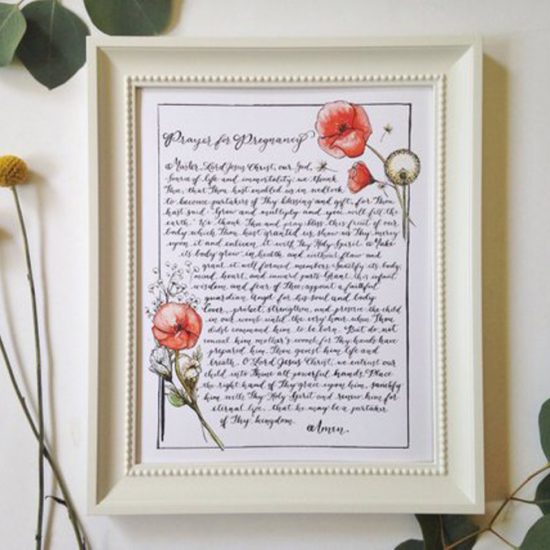 Prayer for Pregnancy
Master, Lord Jesus Christ, our God,
Source of life and immortality, we thank
Thee, that Thou hast enabled us in wedlock
to become partakers of Thy blessing and gift, for Thou
hast said: Grow and multiply and you will fill the
earth. We thank Thee and pray, bless this fruit of our
body which Thou hast granted us, show us Thy mercy
upon it and enliven it with Thy Holy Spirit. Make
its body grow in health and without flaw and
grant it well formed members. Sanctify its body,
mind, heart, and inward parts. Grant this infant
wisdom, and fear of Thee; appoint a faithful
guardian Angel for his soul and body
Cover, protect, strengthen, and preserve the child
in our womb until the very hour when Thou
didst command him to be born. But do not
conceal him mother's womb for Thy hands have
prepared him, Thou gavest him life and
breath. O Lord Jesus Christ, we entrust our
child into Thine all powerful hands. Place
the right hand of Thy grace upon him, sanctify
him with Thy Holy Spirit and renew him for
eternal life, that he may be a partaker
of Thy kingdom. Amen.